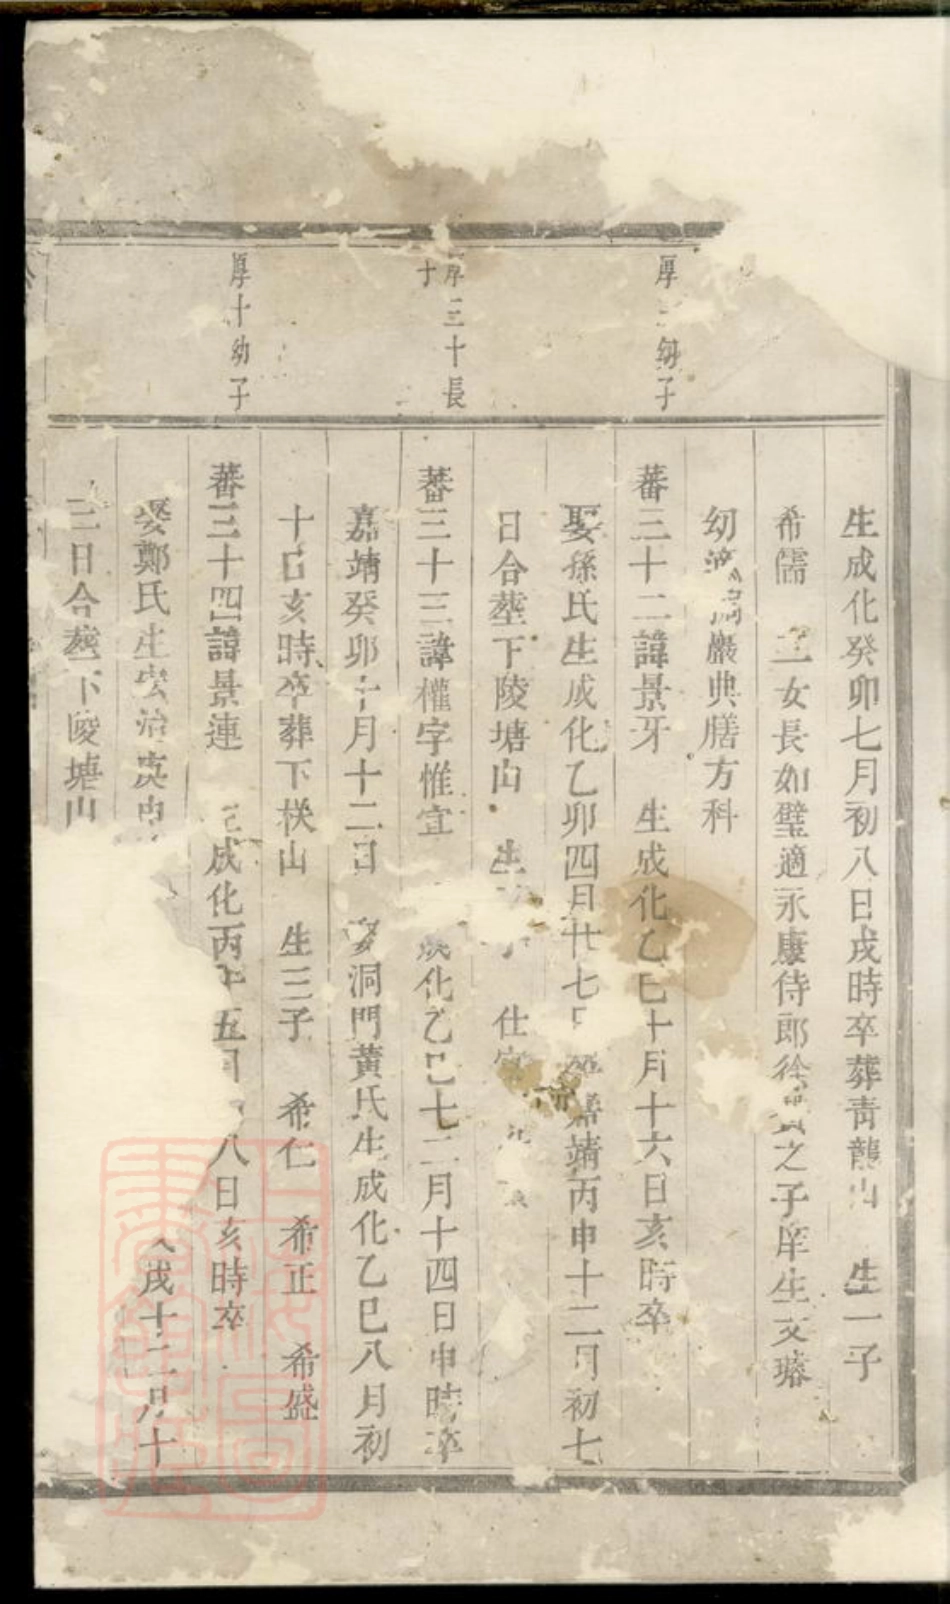 生成化癸卯七月初八日戌時卒葬青龍山 生一子
希儒 二女長如璧適永康侍郎徐之子庠生文璿
幼適巖典膳方科
厚幼子
蕃三十二諱景牙 生成化乙巳十月十六日亥時卒
娶孫氏生成化乙卯四月廿七嘉靖丙申十二月初七
日合塟下陵塘山 生子 仕
厚三十長
子
蕃三十三諱權字惟宜 成化乙巳十二月十四日申時卒
嘉靖癸卯十月十二日 娶洞門黃氏生成化乙巳八月初
十日亥時卒葬下山 生三子 希仁 希正 希盛
厚十幼子
蕃三十四諱景連 生成化丙午五月八日亥時卒
娶鄭氏生宏治庚申戌十二月十
二日合塟下陵塘山
上海圖書館藏